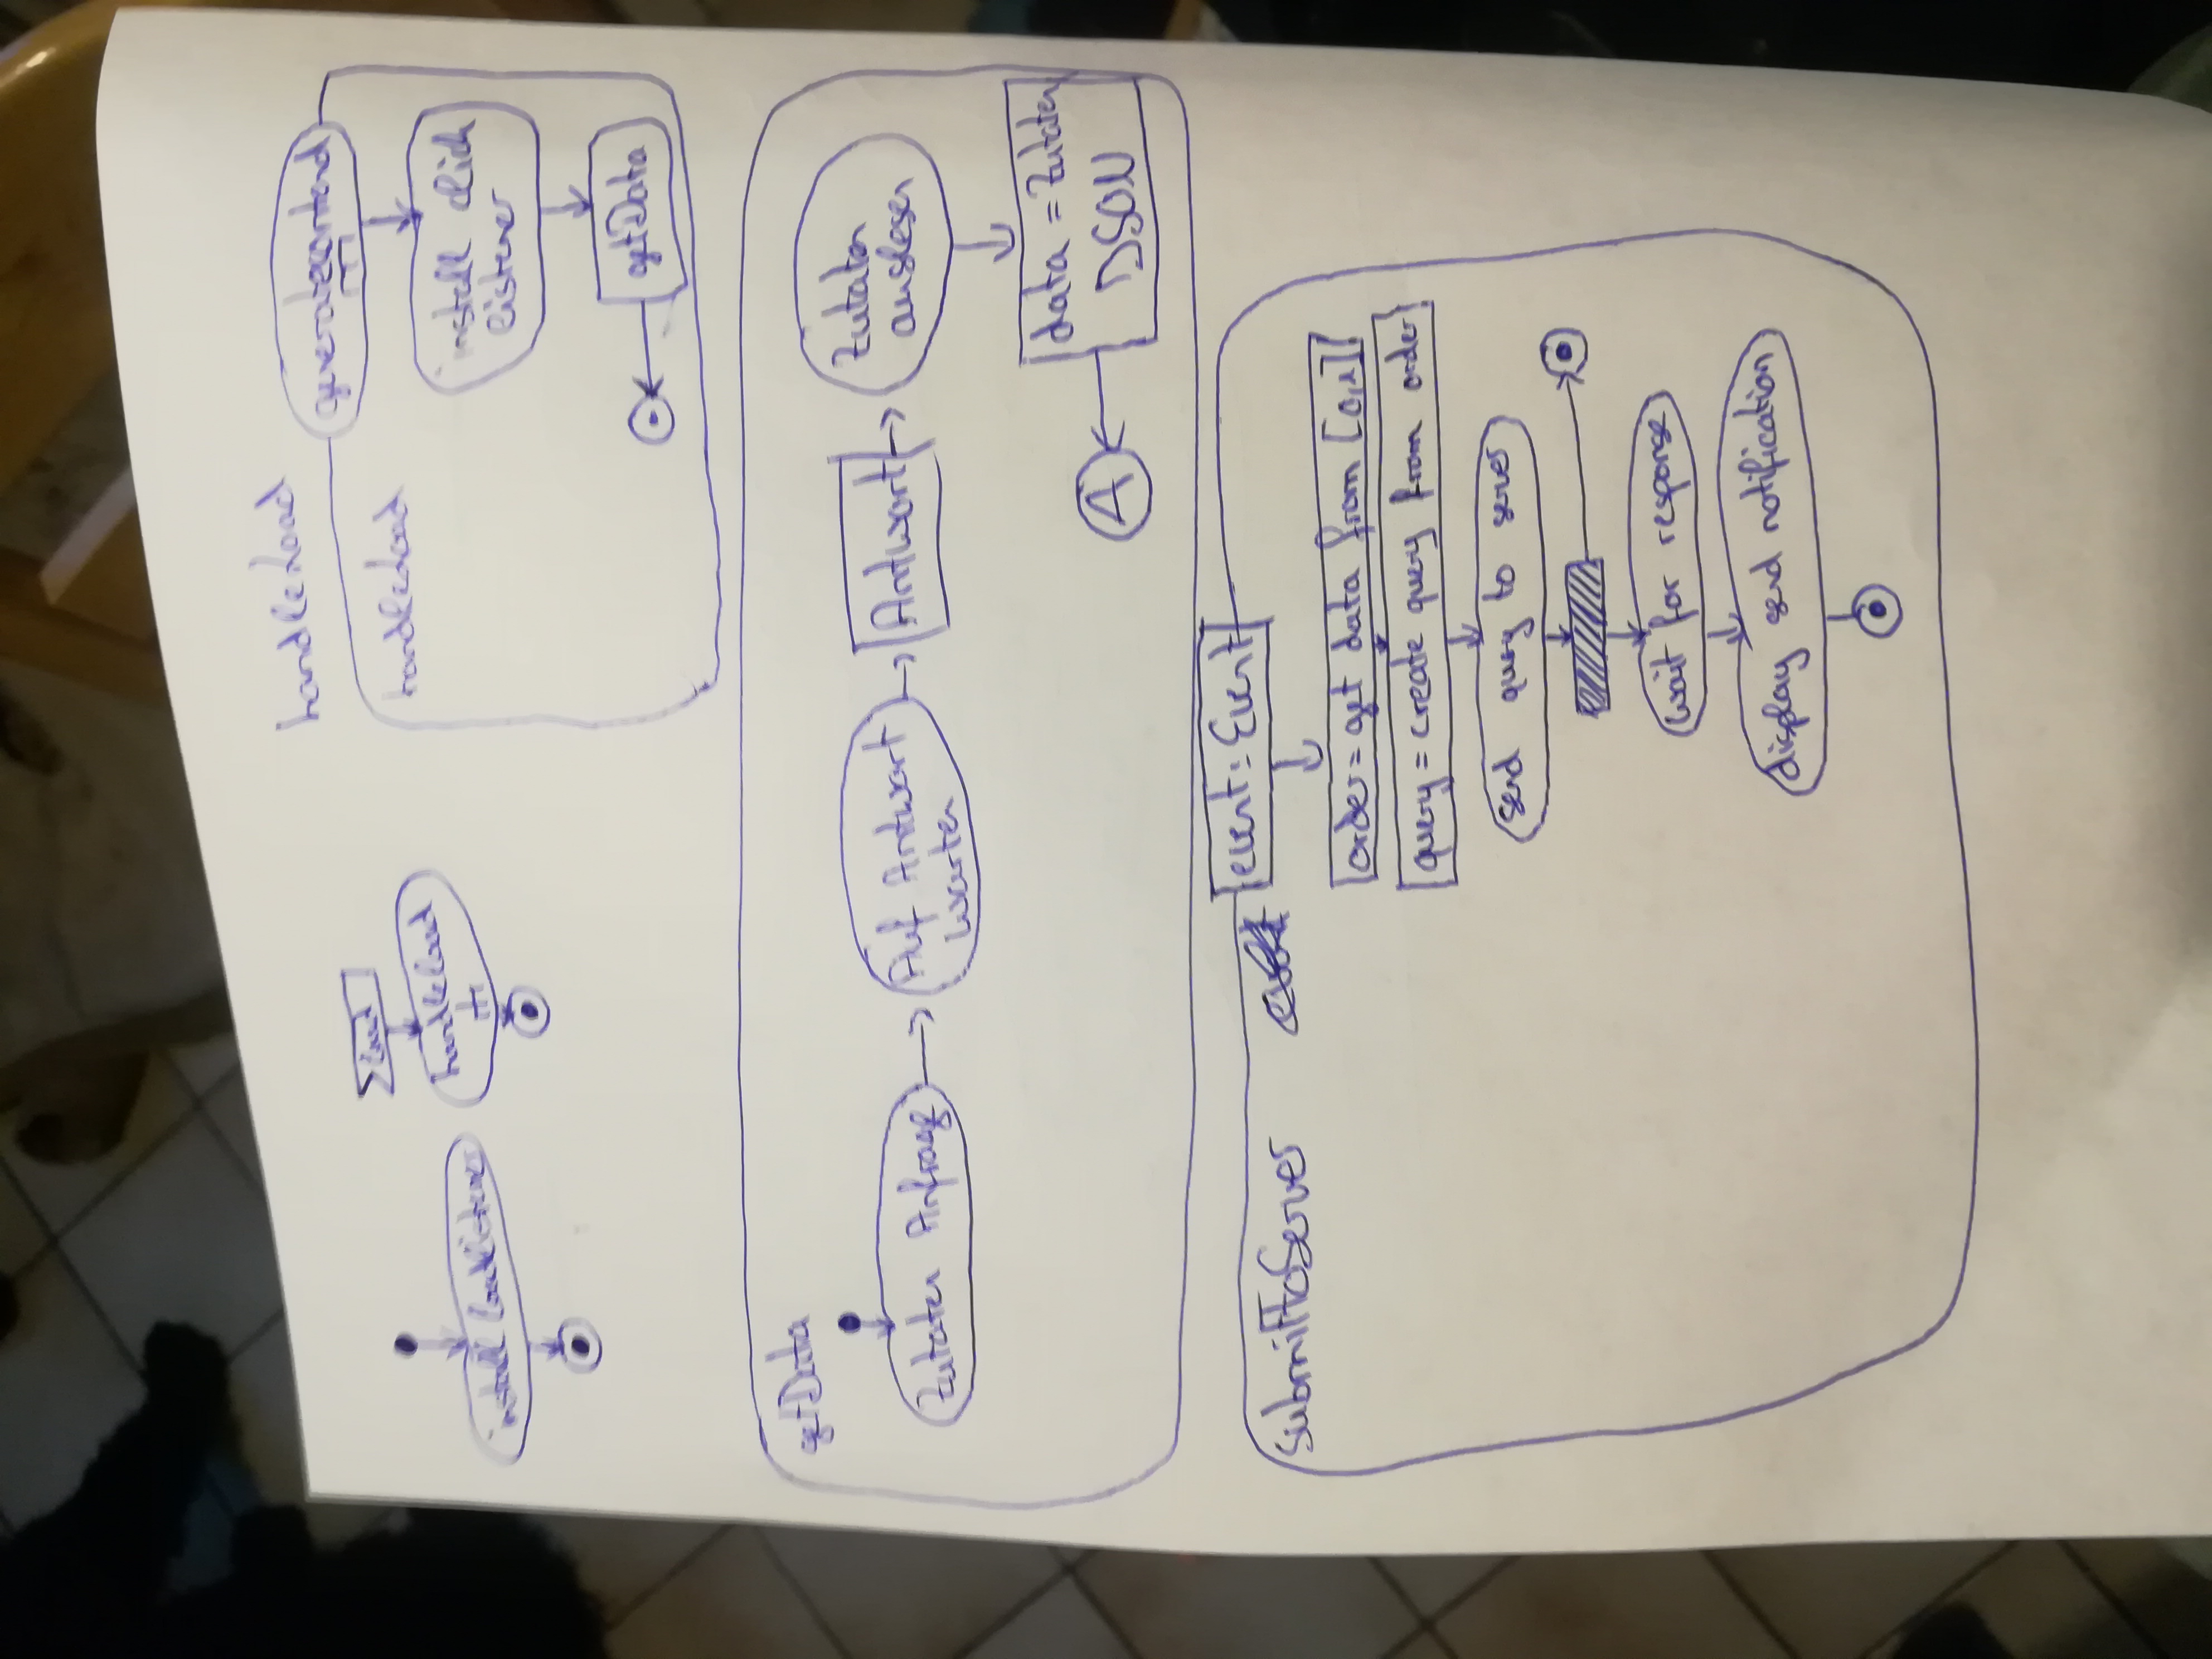 handleLoad
generatecontend
load
handleLoad
install loadlistener
handleLoad
install click
listener
getData
getData
Zutaten Anfrage
Auf Antwort
warten
Antwort
Zutaten
auslesen
data = Zutaten
JSON
A
submitToServer
event: Event
order = get data from [0,1]
query = create query from order
send query to server
wait for response
display send notification